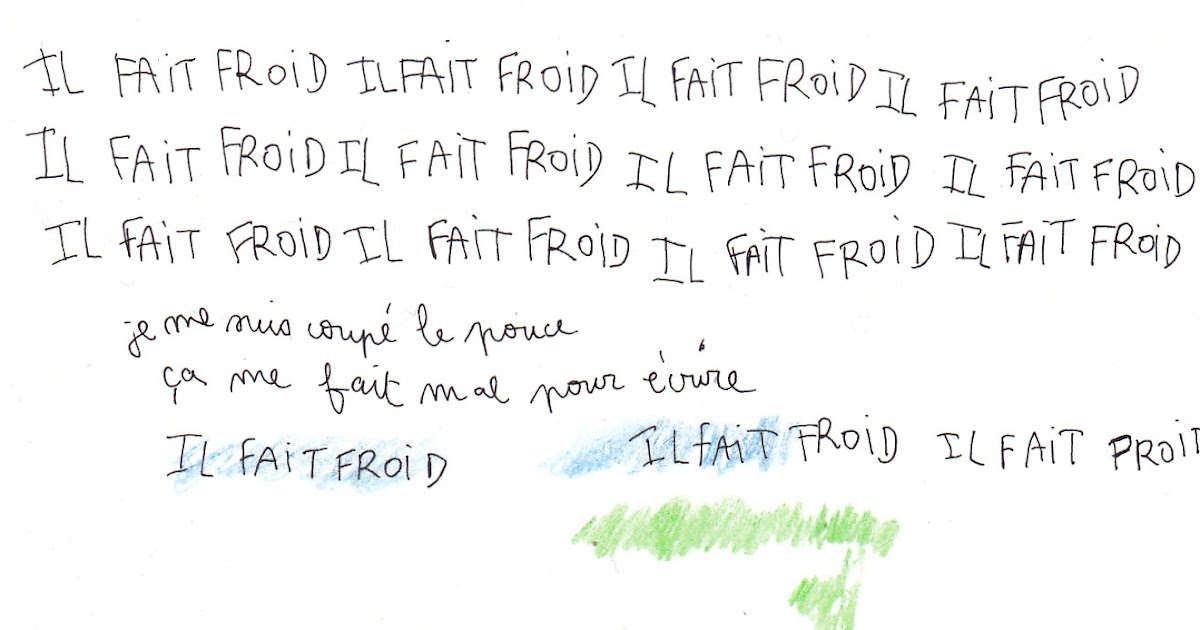 IL FAIT FROID IL FAIT FROID IL FAIT FROID IL FAIT FROID
IL FAIT FROID IL FAIT FROID IL FAIT FROID IL FAIT FROID
IL FAIT FROID IL FAIT FROID IL FAIT FROID IL FAIT FROID
je me suis coupé le pouce
ça me fait mal pour écrire
IL FAIT FROID IL FAIT FROID IL FAIT PROIT